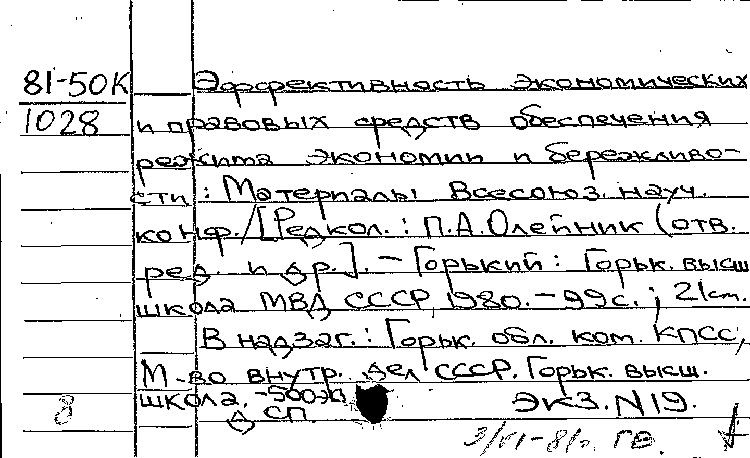 81-50К Эффективность экономических
1028 и правовых средств обеспечения
режима экономии и бережливо-
сти: Материалы Всесоюз. науч.
конф. / [Редкол.: П.А. Олейник (отв.
ред. и др.]. - Горький: Горьк. высш
школа МВД СССР, 1980. - 99с.; 21 см.
В надзаг.: Горьк. обл. ком. КПСС,
М-во внутр. дел СССР. Горьк. высш.
школа. - 500 эк
8 ДСП. ЭКЗ. N 19.
3/VI-81г.